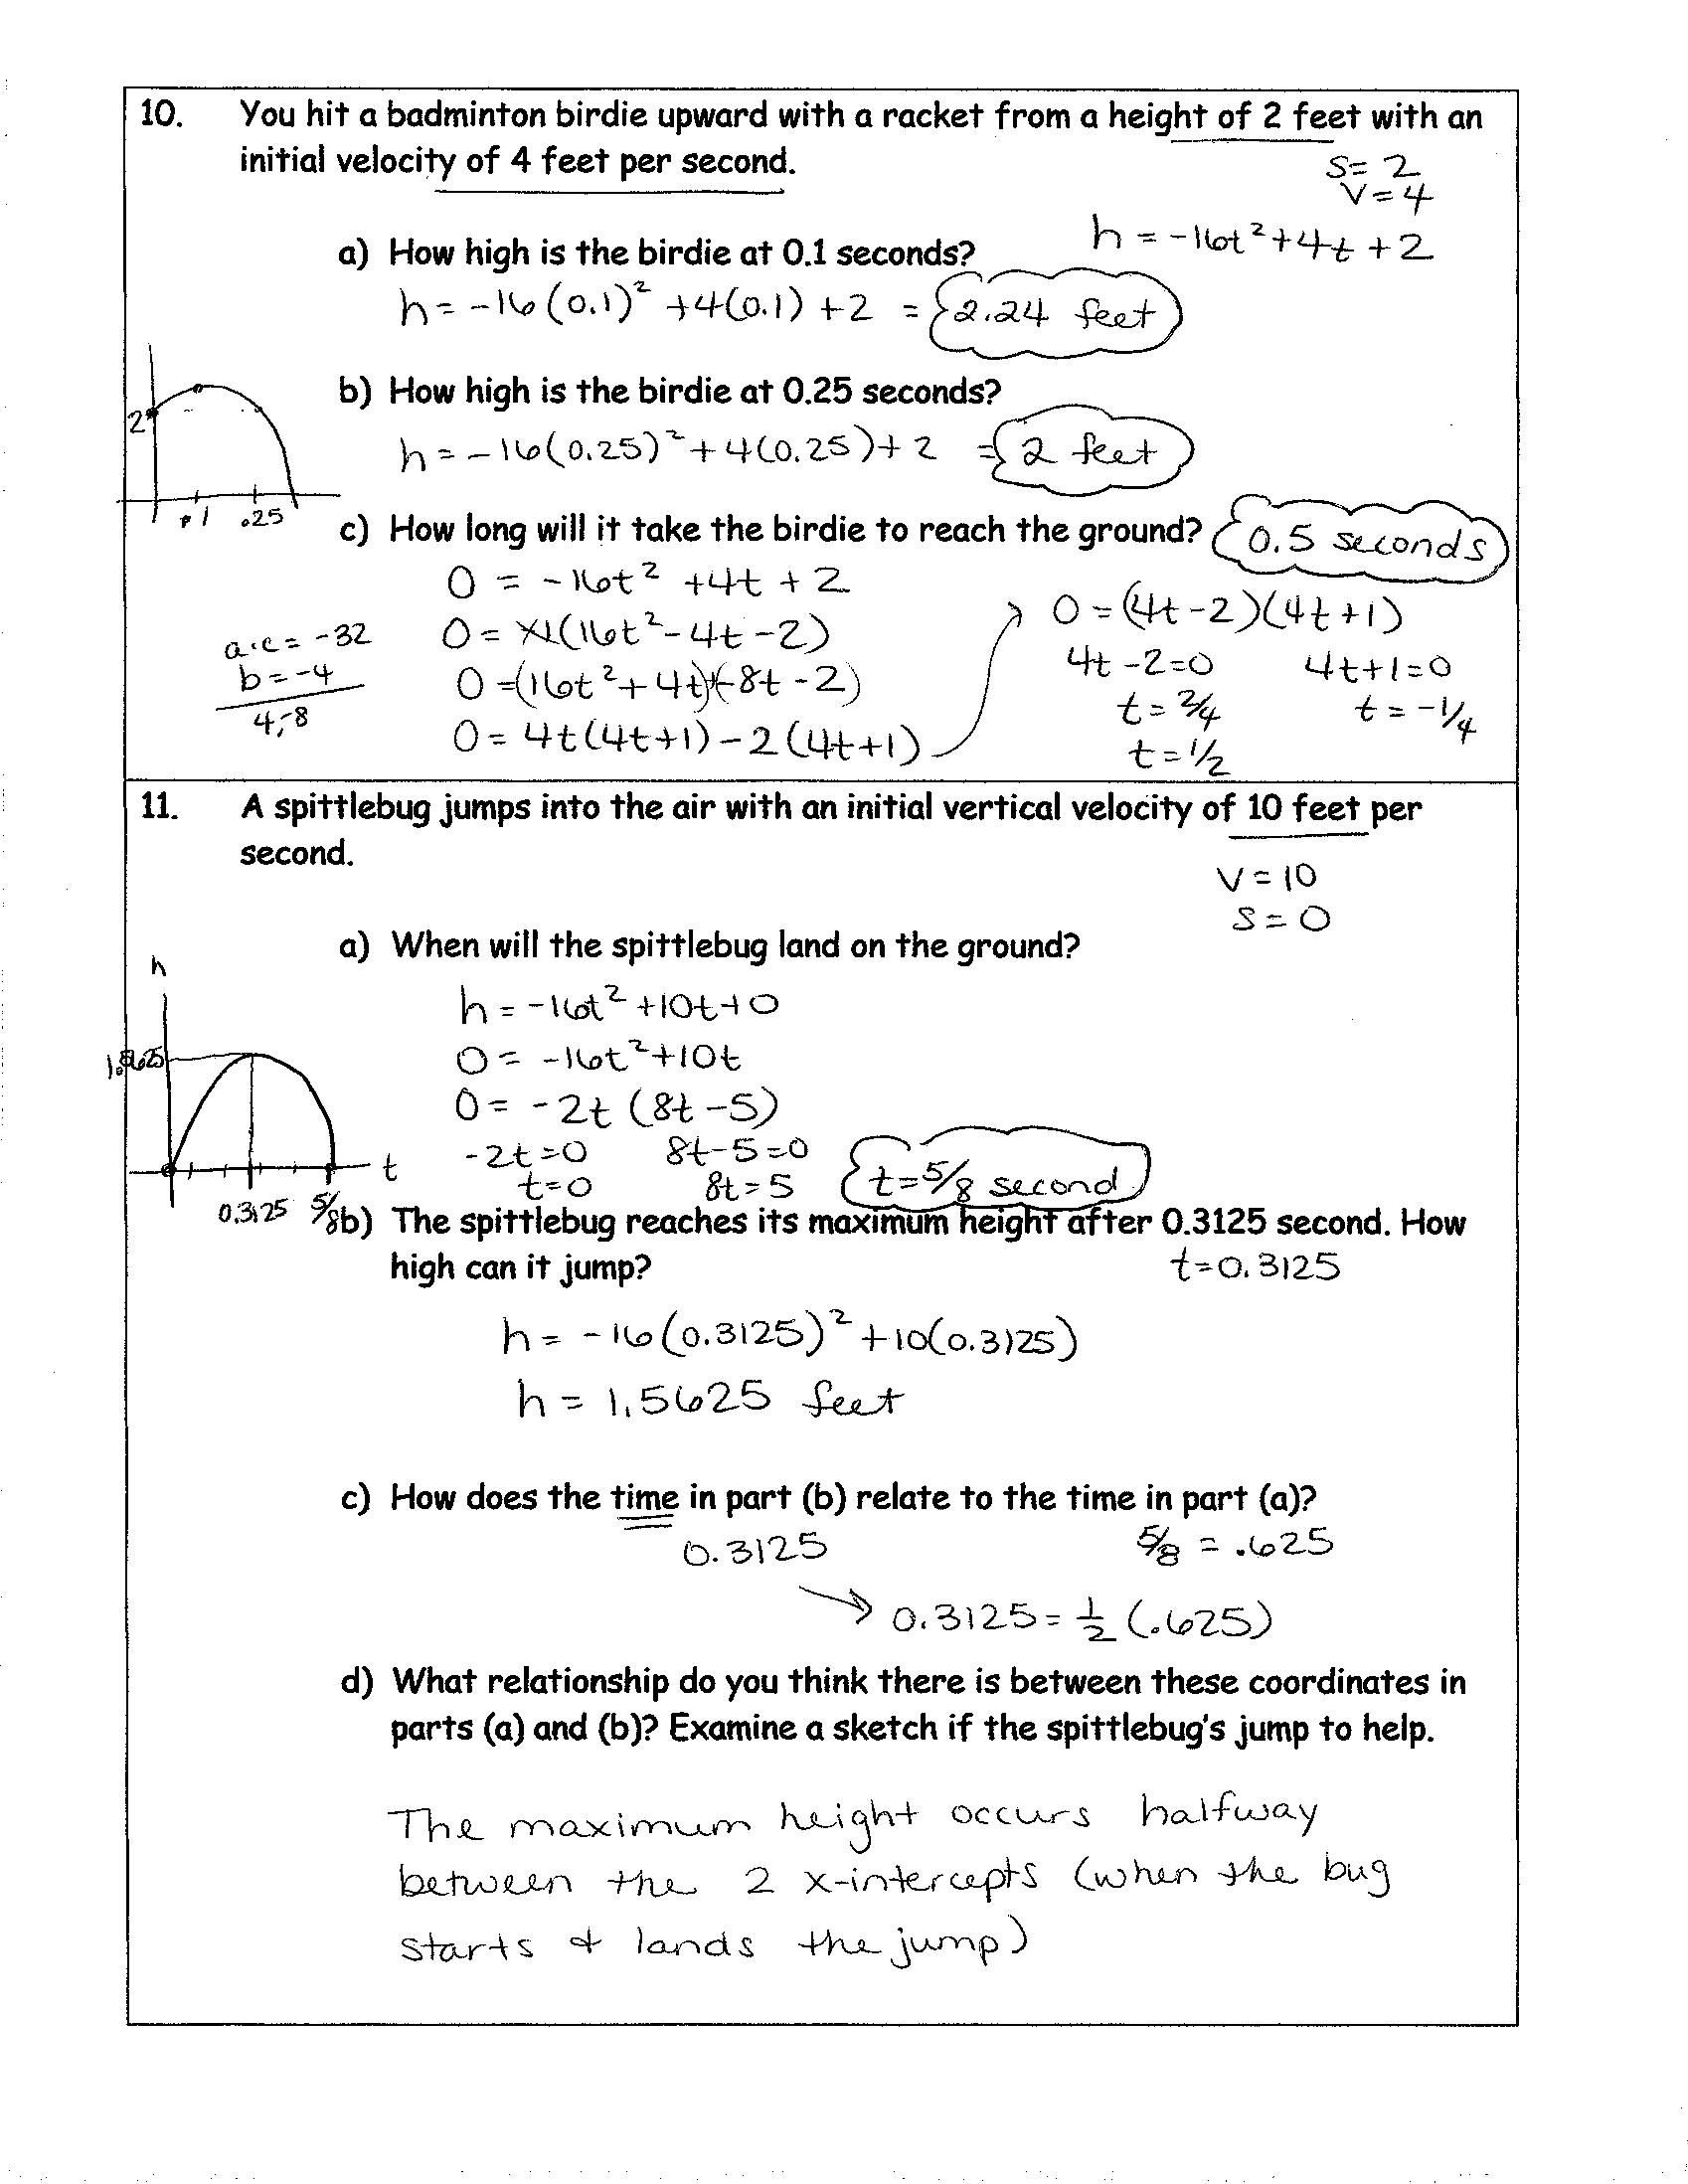 10. You hit a badminton birdie upward with a racket from a height of 2 feet with an
initial velocity of 4 feet per second.
s= 2
v=4
h = -16t²+4t+2
a) How high is the birdie at 0.1 seconds?
h= -16(0.1)² +4(0.1) +2 = 2.24 feet
b) How high is the birdie at 0.25 seconds?
h= -16(0.25)²+4(0.25)+2 = 2 feet
2
.1 .25
c) How long will it take the birdie to reach the ground? 0.5 seconds
0 = -16t² +4t +2
0= -1(16t²-4t-2)
0=(16t²+4t)+(-8t-2)
0= 4t(4t+1)-2(4t+1)
a·c= -32
b=-4
4,-8
0=(4t-2)(4t+1)
4t-2=0 4t+1=0
t=2/4 t=-1/4
t=1/2
11. A spittlebug jumps into the air with an initial vertical velocity of 10 feet per
second.
v=10
s=0
a) When will the spittlebug land on the ground?
h= -16t²+10t+0
0= -16t²+10t
0= -2t(8t-5)
-2t=0 8t-5=0
t=0 8t=5 t=5/8 second
h
1.5625
t
0.3125 5/8
b) The spittlebug reaches its maximum height after 0.3125 second. How
high can it jump? t=0.3125
h= -16(0.3125)²+10(0.3125)
h= 1.5625 feet
c) How does the time in part (b) relate to the time in part (a)?
0.3125 5/8 = .625
→ 0.3125= 1/2 (.625)
d) What relationship do you think there is between these coordinates in
parts (a) and (b)? Examine a sketch if the spittlebug's jump to help.
The maximum height occurs halfway
between the 2 x-intercepts (when the bug
starts & lands the jump)